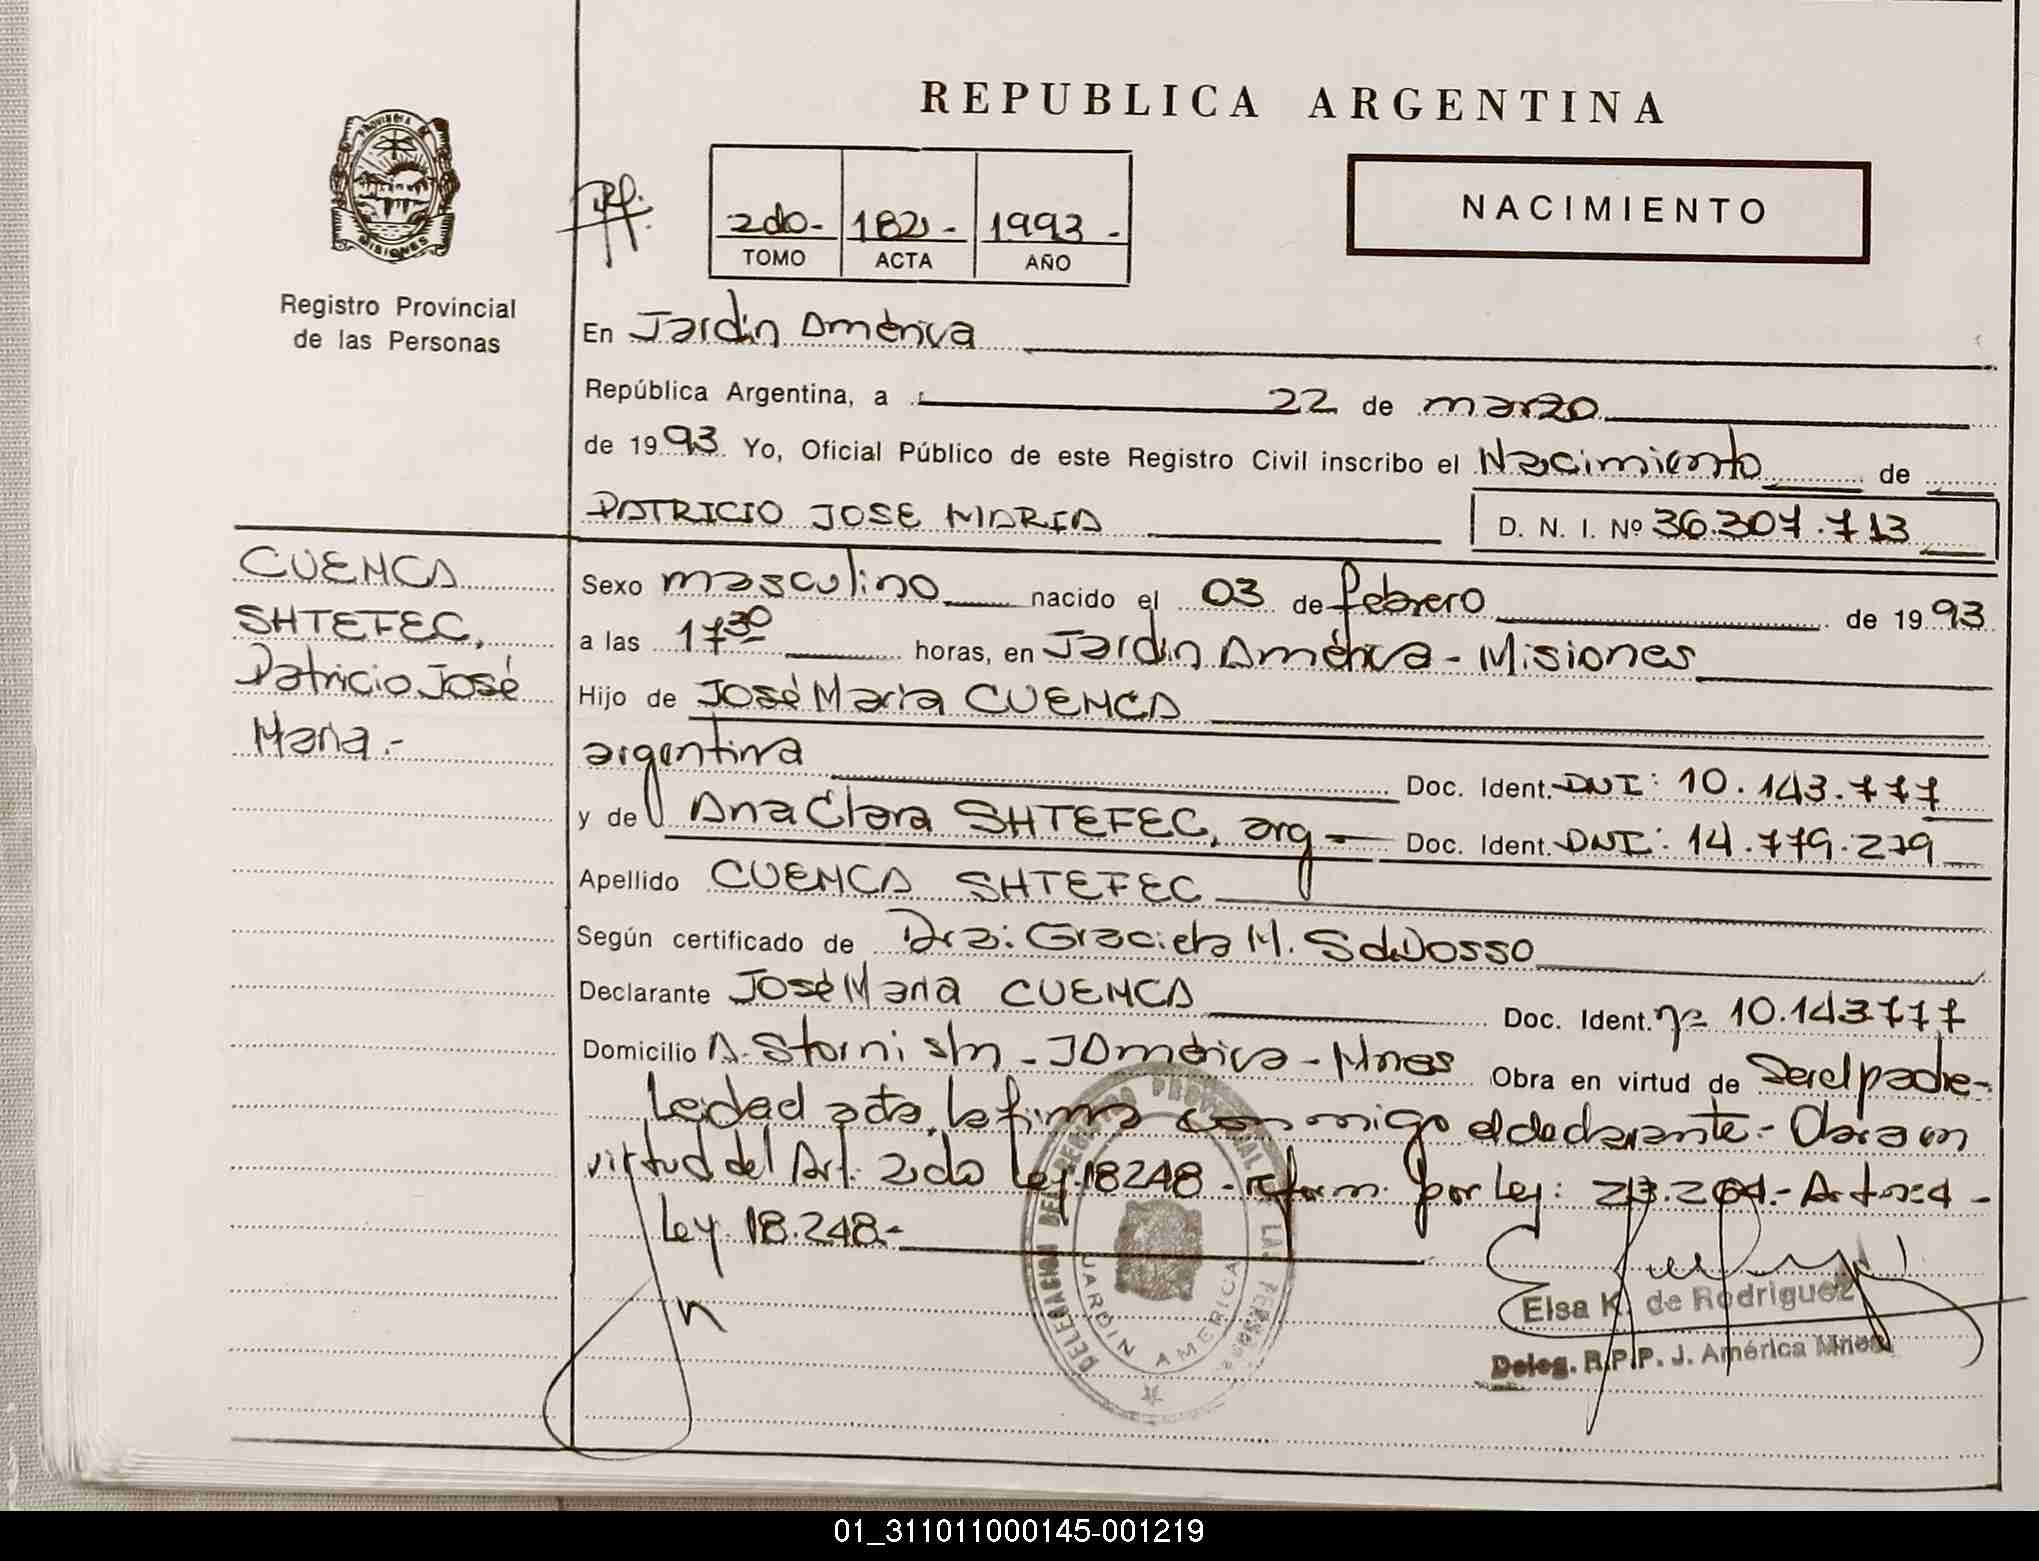 REPUBLICA ARGENTINA
PROVINCIA DE
MISIONES
Registro Provincial
de las Personas
2do.- 182 - 1993 -
TOMO ACTA AÑO
NACIMIENTO
En Jardin América
República Argentina, a 22 de marzo
de 1993 Yo, Oficial Público de este Registro Civil inscribo el Nacimiento de
PATRICIO JOSE MARIA
D. N. I. Nº 36.307.713
CUENCA
SHTEFEC,
Patricio José
Maria.-
Sexo masculino nacido el 03 de febrero de 1993
a las 17 30 horas, en Jardin América - Misiones
Hijo de José Maria CUENCA
argentina Doc. Ident. DNI: 10.143.777
y de Ana Clara SHTEFEC, arg - Doc. Ident. DNI: 14.779.279
Apellido CUENCA SHTEFEC
Según certificado de Dra: Graciela M.
Declarante José Maria CUENCA Doc. Ident. nº 10.143777
Domicilio A. Storni s/n - J América - Mnes Obra en virtud de Ser el padre-
Leida el acta, la firma conmigo el declarante.- Obra en
virtud del Art. 2do Ley.18248 - reform. por Ley:
Ley. 18.248.-
DELEGACION DEL REGISTRO PROVINCIAL DE LAS PERSONAS
JARDIN AMERICA
Elsa K. de Rodriguez
Deleg. R.P.P. J. América Mnes
01_311011000145-001219